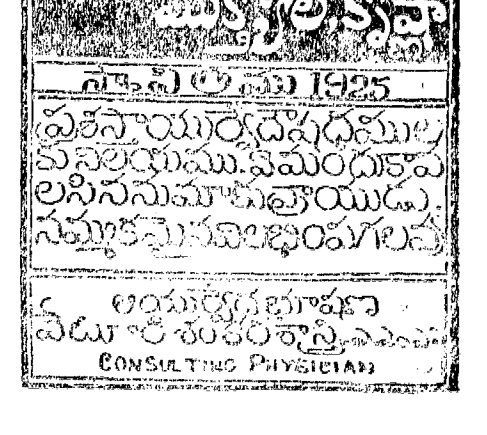 స్థాపితము 1925
ప్రశస్తాయుర్వేదౌషధముల
కు నిలయము. ఏమందుకావ
లసిననుమాకువ్రాయుడు.
నమ్మకమైనవిలభింపగలవు
ఆయుర్వేద భూషణ
వేటూరి శంకరశాస్త్రి
CONSULTING PHYSICIAN